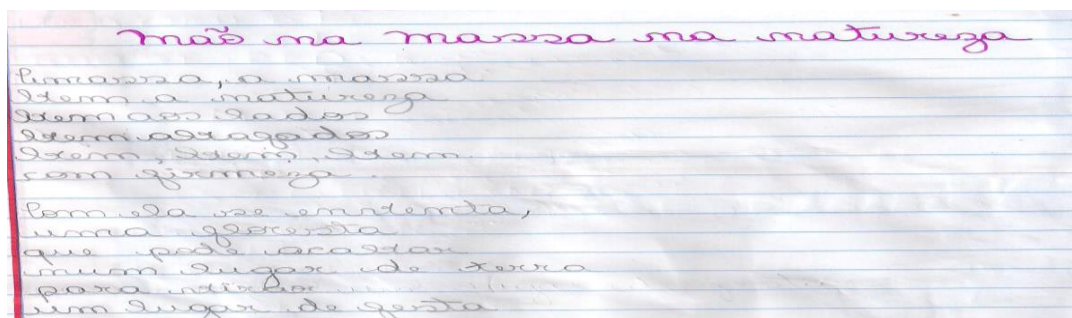 Mão na massa na natureza
a massa
Bem a natureza
Bem aos lados
Bem
Bem, Bem, Bem
com firmeza.
Com ela se
uma floresta
que pode acabar
num lugar de terra
para virar
um lugar de festa